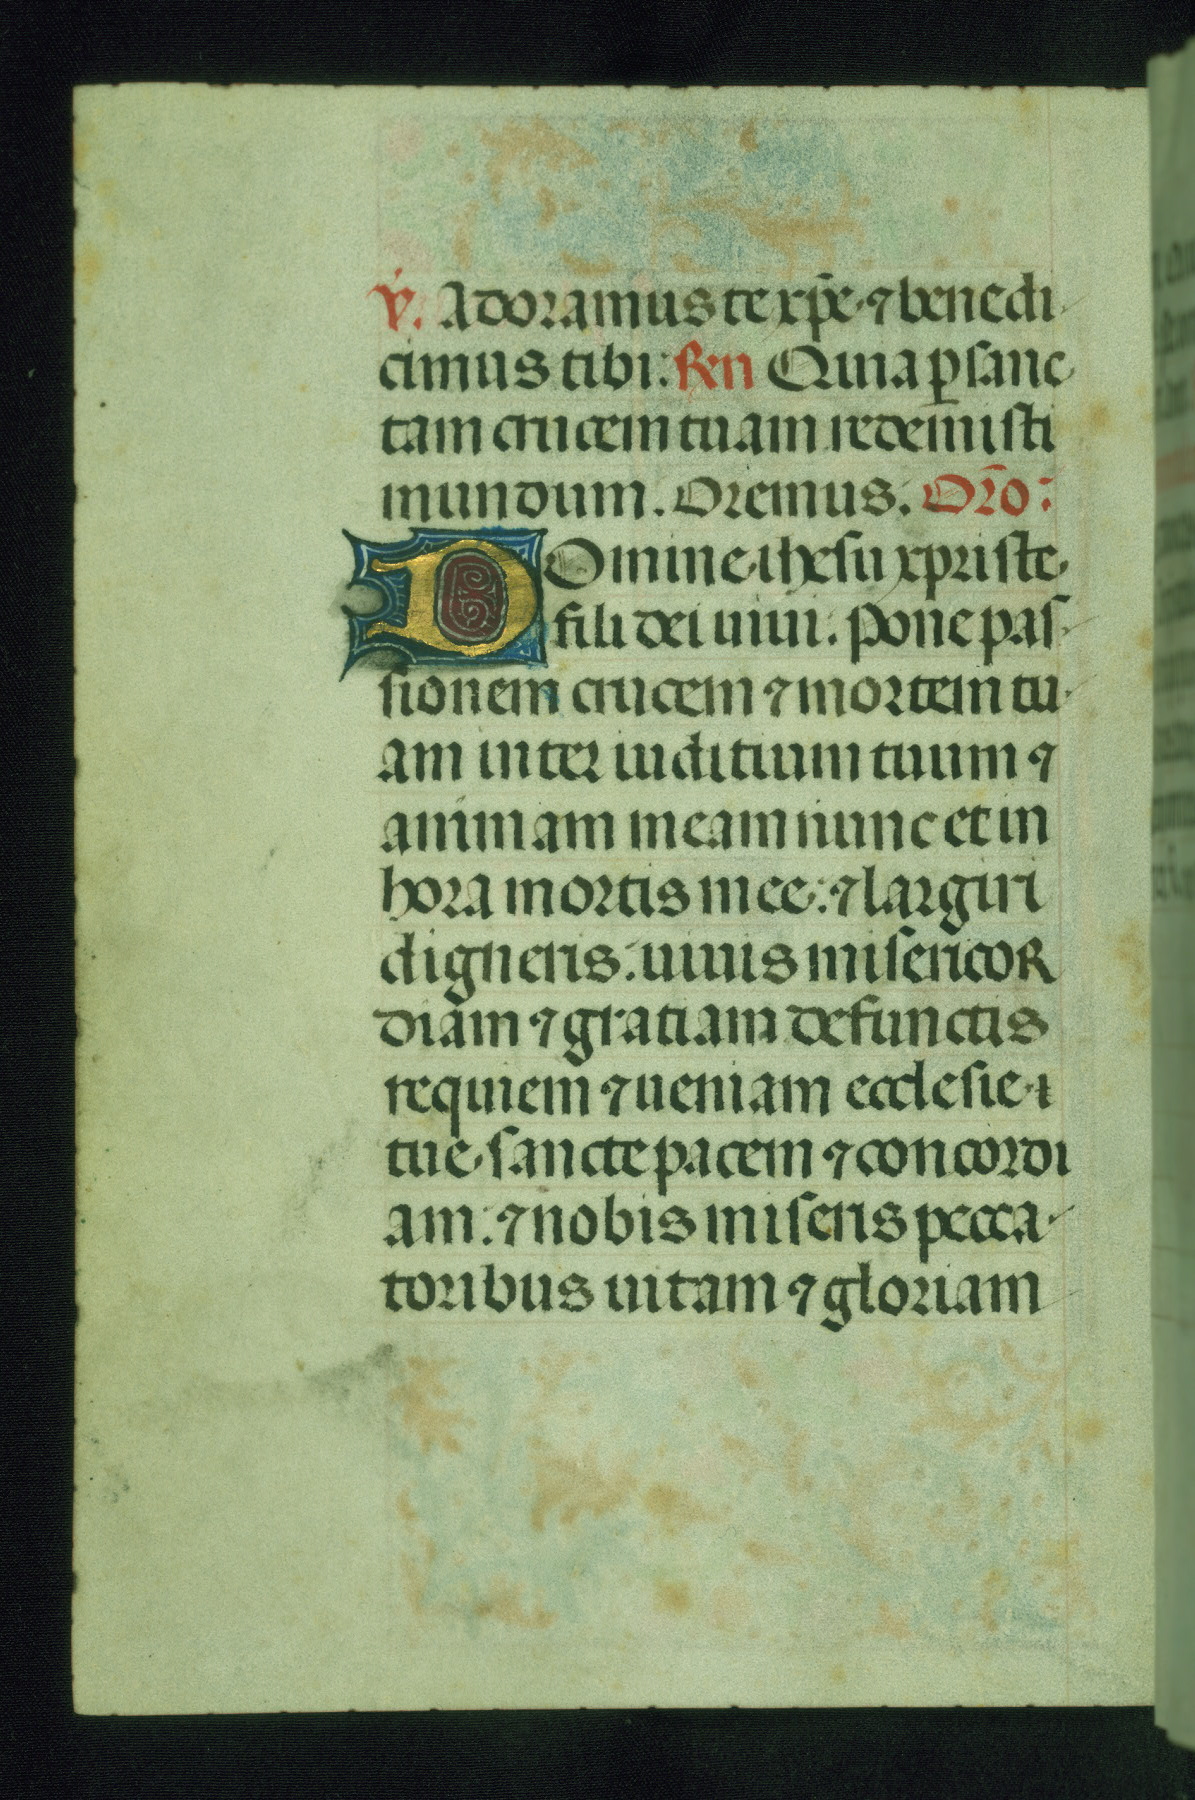 v. Adoramus te xp̄e ⁊ benedi
cimus tibi: Ren Quia ꝑ sanc
tam crucem tuam redemisti
mundum. Oremus. Oro:
DOmine ihesu xpriste
fili dei uiui. Pone pas
sionem crucem ⁊ mortem tu
am inter iuditium tuum ⁊
animam meam nunc et in
hora mortis mee: ⁊ largiri
digneris: uiuis misericor
diam ⁊ gratiam defunctis
requiem ⁊ ueniam ecclesie
tue sancte pacem ⁊ concordi
am: ⁊ nobis miseris pecca
toribus uitam ⁊ gloriam